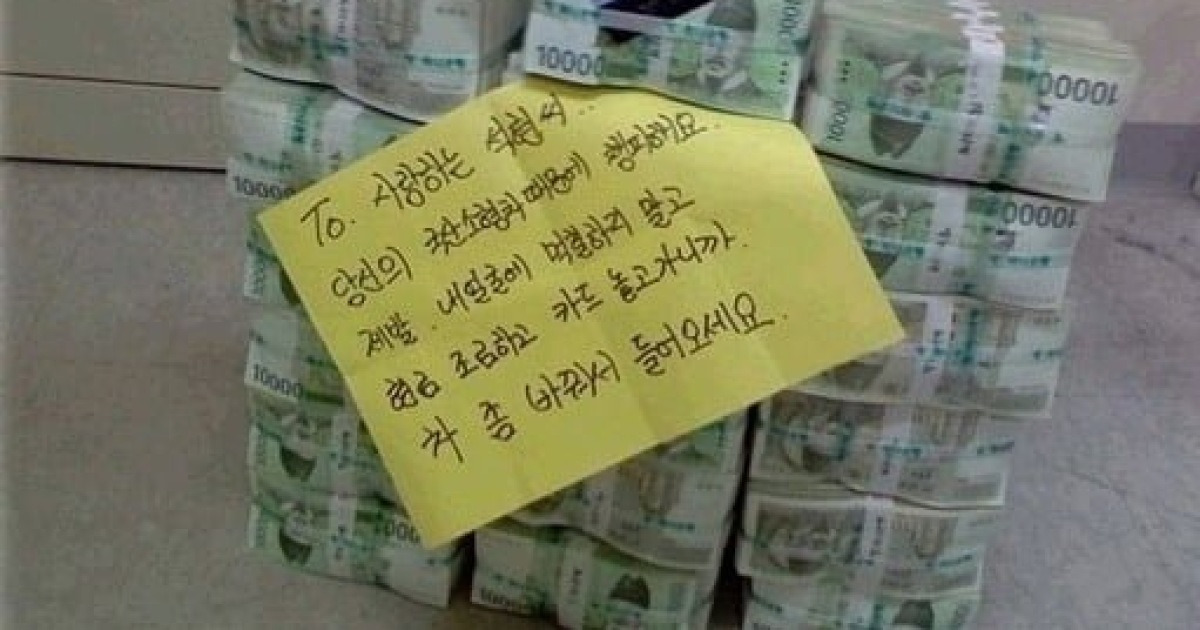 10000
10000
1000
10000
10000
10000
10000
To. 사랑하는 식현씨..
당신의 국산소형차때문에 챙피해요.
제발. 내얼굴에 먹칠하지 말고
현금 조금하고 카드 놓고가니까.
차 좀 바꿔서 들어오세요.